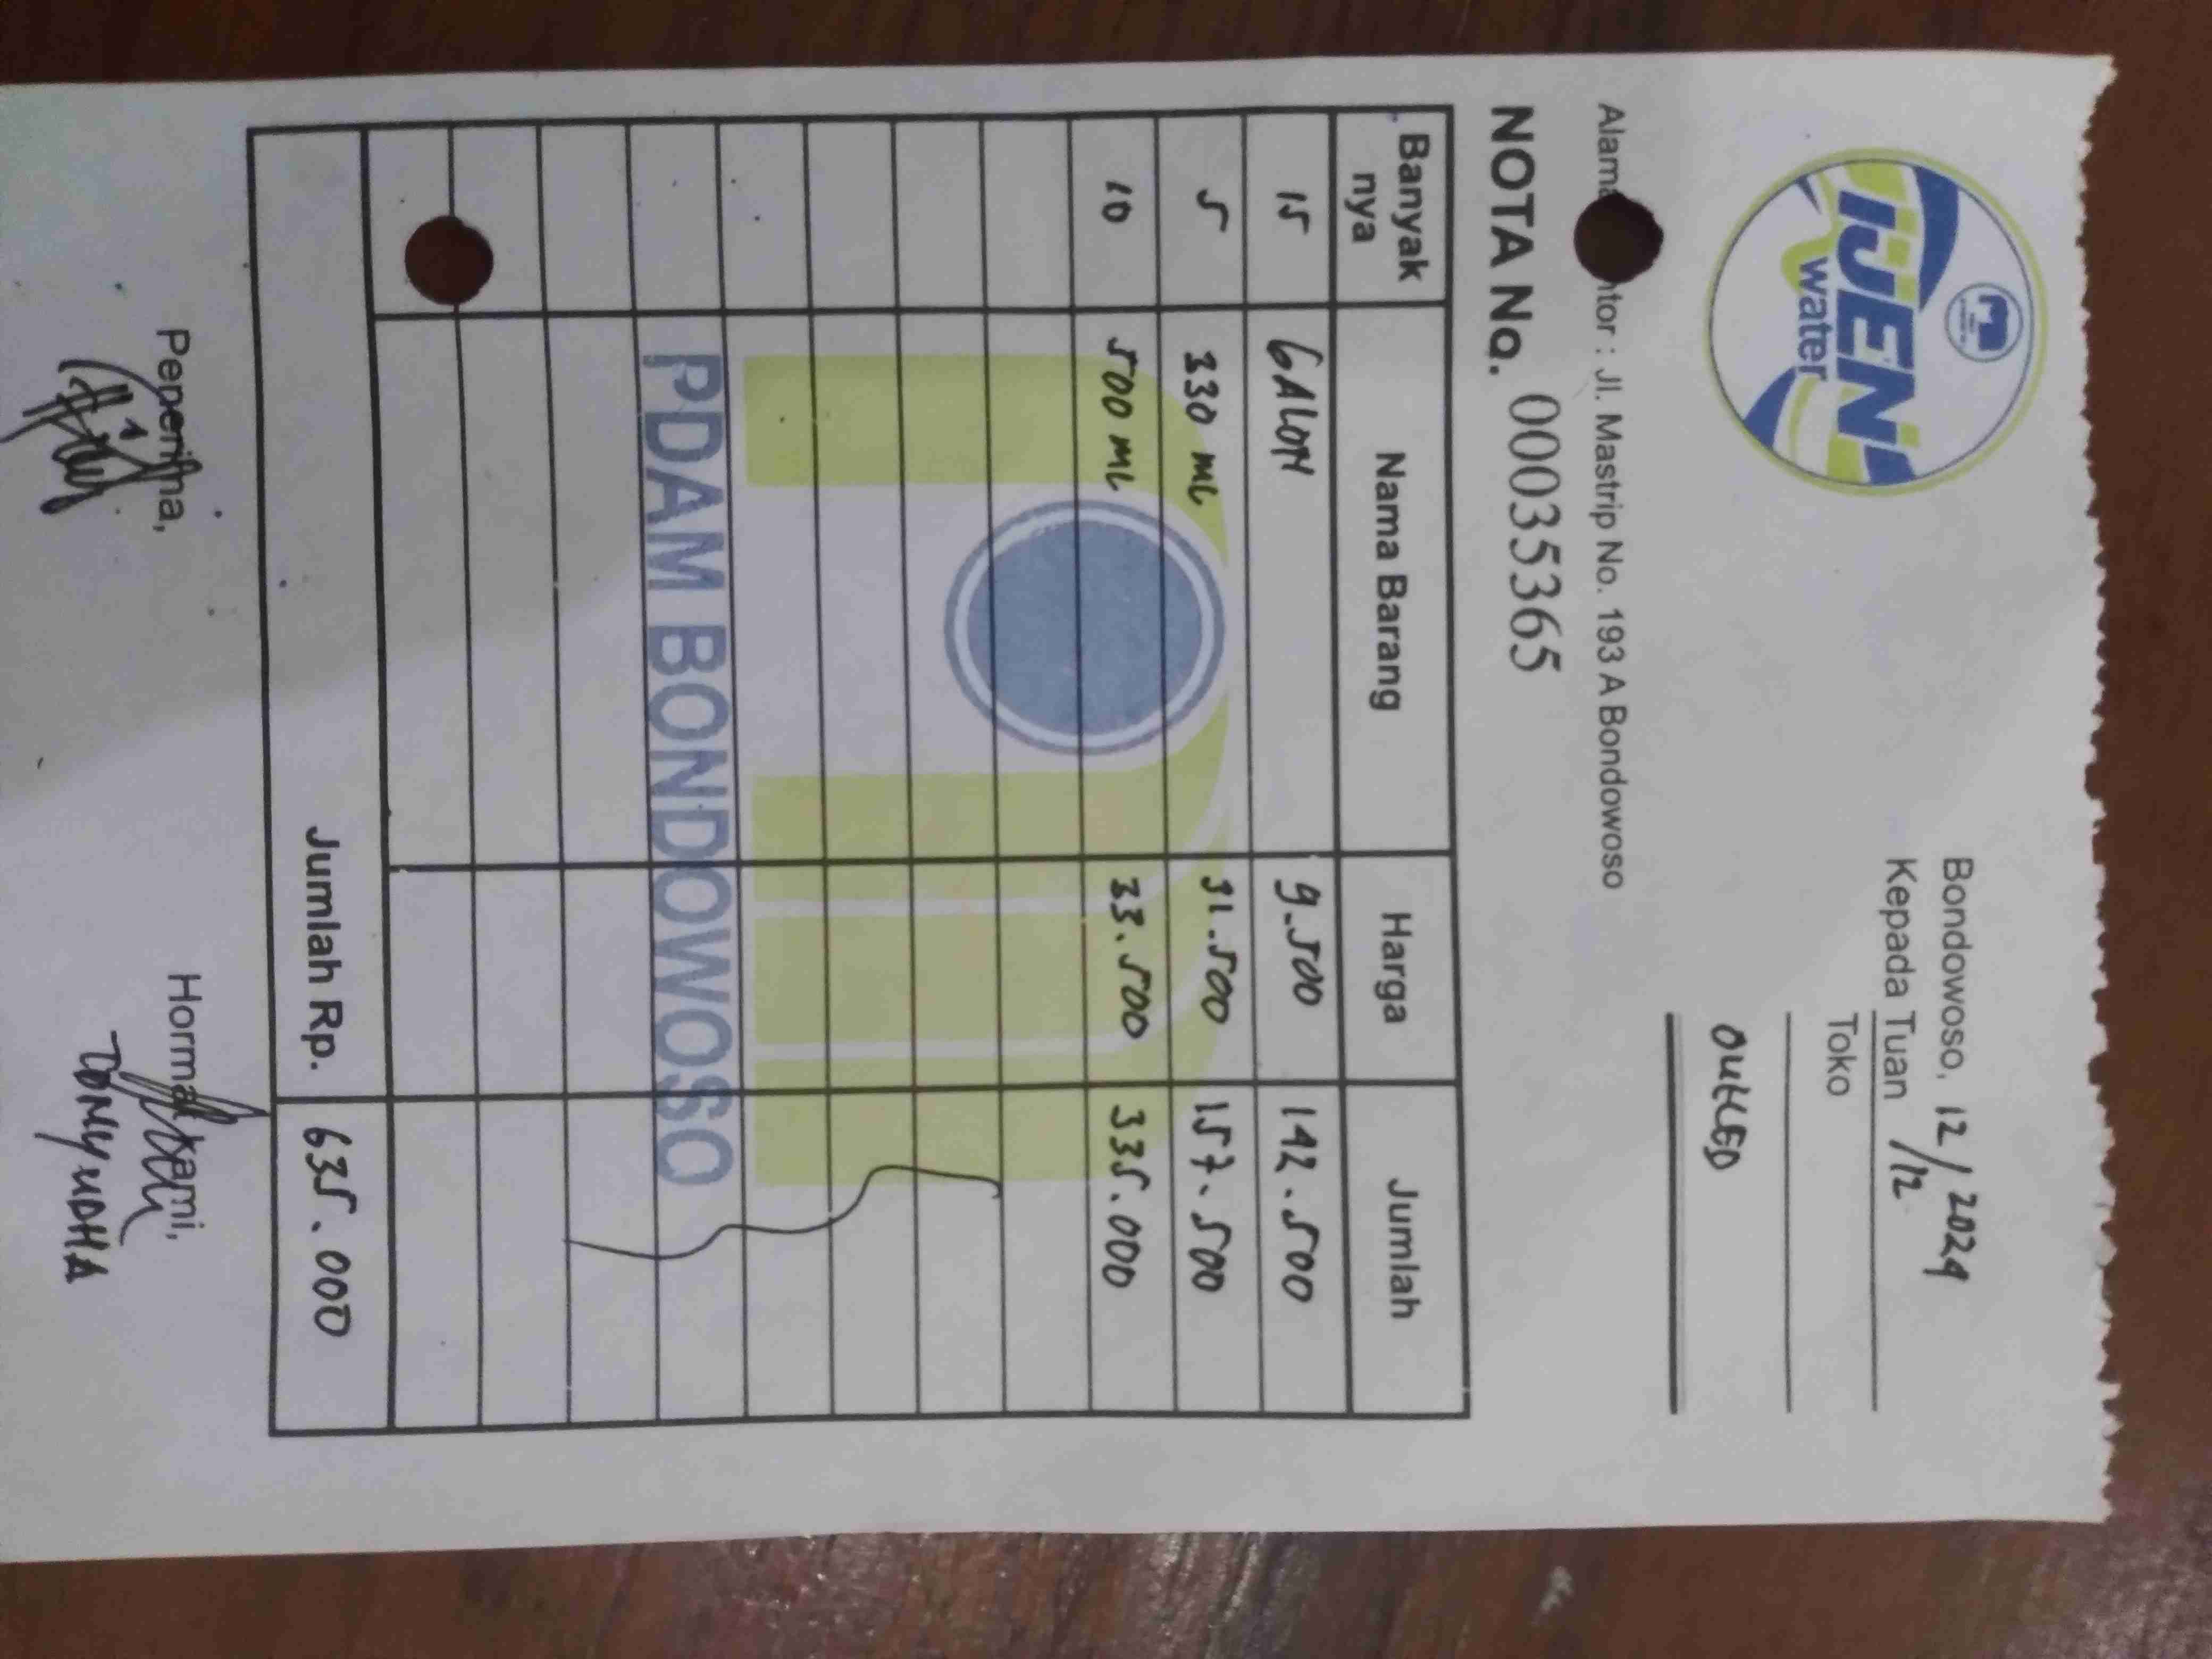 IJEN
water
Bondowoso, 12/2024
Kepada Tuan /12
Toko
OUTLED
Alama ntor : Jl. Mastrip No. 193 A Bondowoso
NOTA No. 00035365
Banyak nya Nama Barang Harga Jumlah
15 GALON 9.500 142.500
5 330 ML 31.500 157.500
10 500 ML 33.500 335.000
PDAM BONDOWOSO
Jumlah Rp. 635.000
Penerima, Hormat kami,
TONY YUDHA